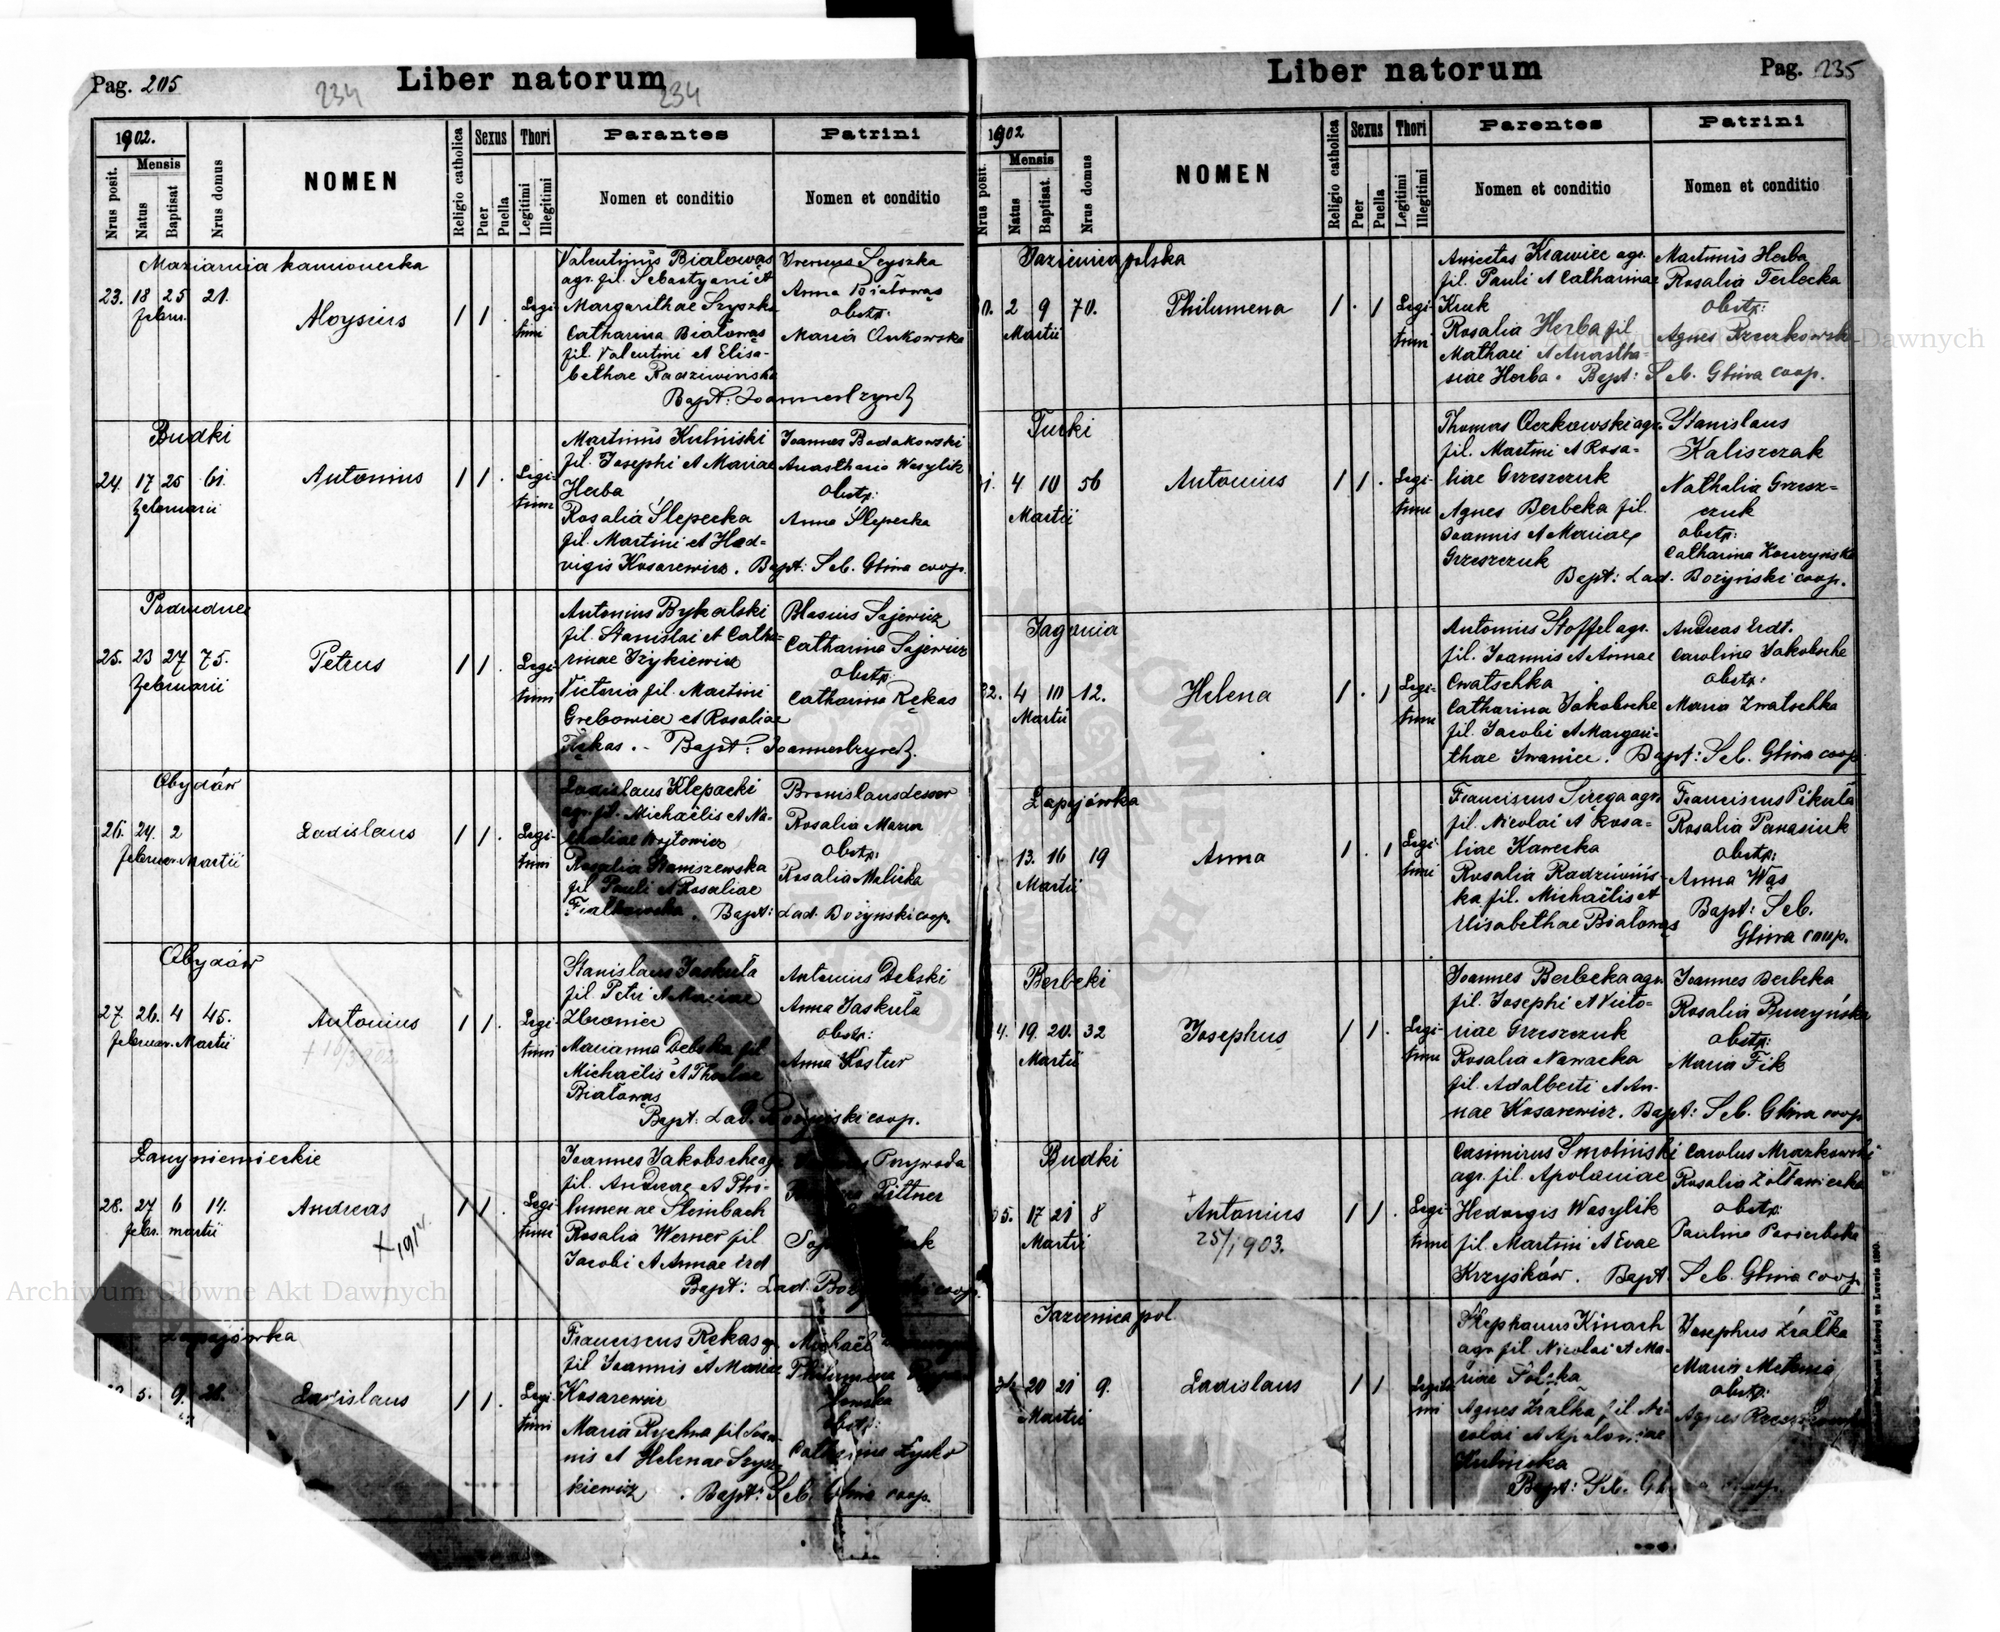 Pag. 205
Liber natorum
234
234
1902.
Nrus posit.
Mensis
Natus
Baptisat
Nrus domus
NOMEN
Religio catholica
Sexus
Puer
Puella
Thori
Legitimi
Illegitimi
Parantes
Nomen et conditio
Patrini
Nomen et conditio
Maziarnia kamionecka
23. 18 25 21.
febru.
Aloysius
1 1 .
Legi-
timi
Valentinus Białowąs
agr. fil. Sebastyani et
Margarithae Szyszka
Catharina Białowąs
fil. Valentini et Elisa-
bethae Radziwińska
Anna Białowąs
obstr:
Maria
Bapt: Joannes
Budki
24. 17 25 61.
Februarii
Antonius
1 1 .
Legi-
timi
Martinus Kuliński
fil. Josephi et Mariae
Herba
Rosalia Ślepecka
fil. Martini et Hed-
vigis Kosarewicz. Bapt: Seb. Gliwa coop.
Joannes Badakowski
Anasthasia Wasylik
obstr:
Anna Ślepecka
25. 23 27 75.
Februarii
Petrus
1 1 .
Legi-
timi
Antonius Bykalski
fil. Stanislai et Catha-
rinae
Victoria fil. Martini
Grebowicz et Rosaliae
Rękas .- Bapt: Joannes
Blasius Sajewicz
Catharina Sajewicz
obstr:
Catharina Rękas
Obydów
26. 24. 2
februar. Martii
Ladislaus
1 1 .
Legi-
timi
Ladislaus Klepacki
agr. fil. Michaëlis et Na-
thaliae Wojtowicz
Rosalia Staniszewska
fil Pauli et Rosaliae
Fiałkowska. Bapt: Lad. Bożyński coop.
Bronislaus
Rosalia
obstr:
Rosalia Malicka
Obydów
27. 26. 4 45.
februar. Martii
Antonius
1 1 .
Legi-
timi
Stanislaus Jaskuła
fil. Petri et Mariae
Marianna Debska fil
Michaëlis et Theclae
Białowąs
Bapt: Lad. Bożyński coop.
Antonius Debski
Anna Jaskuła
obstr:
Anna Kostur
Łany niemieckie
28. 27 6 14.
febr. martii
Andreas
+ 1914.
1 1 .
Legi-
timi
Joannes Jakobsche agr
fil. Andreae et Phi-
lumenae Steinbach
Rosalia Werner fil
Jacobi et Annae Erd
Bapt: Lad. coop.
Przywoda
Pittner
Łapajówka
5. 9. 26.
Ladislaus
1 1 .
Legi-
timi
Franciscus Rekas
fil Joannis et Mariae
Kosarewicz
Maria Rychwa fil Joan-
nis et Helenae Szysz-
kiewicz . Bapt: Seb. Gliwa coop.
Michaël
Philumena
obstr:
Catharina
Liber natorum
Pag. 235
1902
Nrus posit.
Mensis
Natus
Baptisat.
Nrus domus
NOMEN
Religio catholica
Sexus
Puer
Puella
Thori
Legitimi
Illegitimi
Parentes
Nomen et conditio
Patrini
Nomen et conditio
Jazienica polska
2 9 70.
Martii
Philumena
1 . 1
Legi-
timi
Anicetus Krawiec agr.
fil. Pauli et Catharinae
Kruk
Rosalia Herba fil
Mathaei et Anastha-
siae Herba. Bapt: Seb. Gliwa coop.
Martinus Herba
Rosalia Terlecka
obstr:
Agnes
Turki
4 10 56
Martii
Antonius
1 1 .
Legi-
timi
Thomas Oczkowski agr.
fil. Martini et Rosa-
liae Grzeszczuk
Agnes Berbeka fil.
Joannis et Mariae
Grzeszczuk
Bapt: Lad. Bożyński coop.
Stanislaus
Kaliszczak
Nathalia Grzesz-
czuk
obstr:
Catharina
Jagonia
32. 4 10 12.
Martii
Helena
1 . 1
Legi-
timi
Antonius Stoffel agr.
fil. Joannis et Annae
Cwatschka
Catharina Jakobsche
fil. Jacobi et Marga-
rithae Iwanicz. Bapt: Seb. Gliwa coop
Andreas Erdt.
Carolina Jakobsche
obstr:
Maria
Łapajówka
13. 16 19
Martii
Anna
1 . 1
Legi-
timi
Franciscus agr.
fil. Nicolai et Rosa-
liae Kawecka
Rosalia Radziwińs-
ka fil. Michaëlis et
Elisabethae Białowąs
Franciscus Pikuła
Rosalia Panasiuk
obstr:
Anna Wąs
Bapt: Seb.
Gliwa coop.
Berbeki
19. 20. 32
Martii
Josephus
1 1
Legi-
timi
Joannes Berbeka agr.
fil. Josephi et Victo-
riae Grzeszczuk
Rosalia Nawacka
fil. Adalberti et An-
nae Kosarewicz. Bapt: Seb. Gliwa coop
Joannes Berbeka
Rosalia
obstr:
Maria Fik
Budki
17 21 8
Martii
+ Antonius
25/1903.
1 1 .
Legi-
timi
Casimirus Smoliński
agr. fil. Apoloniae
Hedvigis Wasylik
fil. Martini et Evae
Krzyśków. Bapt. Seb. Gliwa coop
Carolus Mrozkowski
Rosalia
obstr:
Paulina
Jazienica pol.
20 21 9.
Martii
Ladislaus
1 1
Legiti-
mi
Stephanus Kinach
agr fil. Nicolai et Ma-
riae Polska
Agnes Źrałka, fil. Ni-
colai et Apoloniae
Kulnicka
Bapt: Seb. coop.
Josephus Źrałka
Maria
obstr:
Agnes
Archiwum Główne Akt Dawnych
Archiwum Główne Akt Dawnych